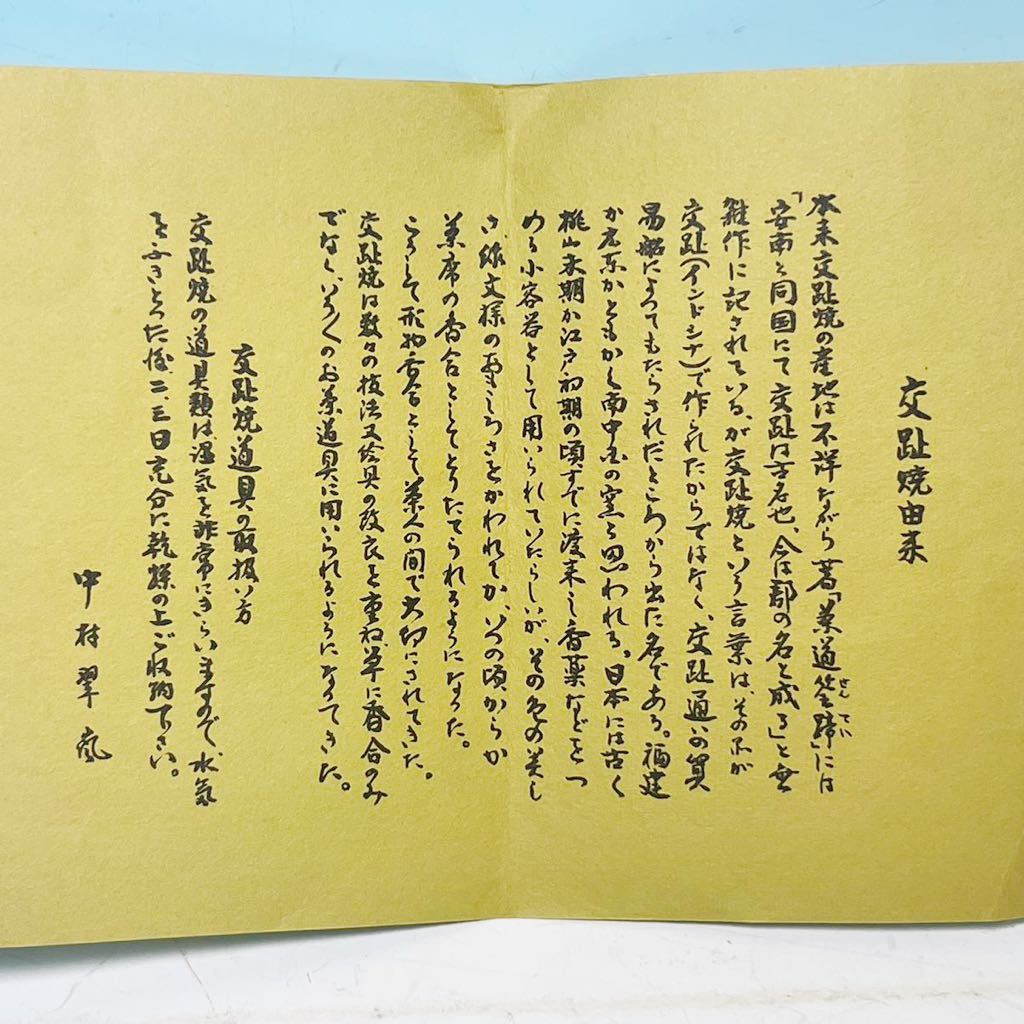 交趾焼由来
本来交趾焼の産地は不詳ながら著「茶道筌蹄」には
せんてい
「安南と同国にて交趾は古名也、今は郡の名と成る」と無
雑作に記されている、が交趾焼という言葉は、その品が
交趾(インドシナ)で作られたからではなく、交趾通いの貿
易船によってもたらされたところから出た名である。福建
か広東かともかく南中国の窯と思われる。日本には古く
桃山末期か江戸初期の頃すでに渡来し香薬などをつ
める小容器として用いられていたらしいが、その色の美し
さ、線文様のおもしろさをかわれてか、いつの頃からか
茶席の香合としてとりたてられるようになった。
こうして形物香合として茶人の間で大切にされてきた。
交趾焼は数々の技法又絵具の改良を重ね単に香合のみ
でなく、いろ〱のお茶道具に用いられるようになってきた。
交趾焼道具の取扱い方
交趾焼の道具類は湿気を非常にきらいますので、水気
をふきとった後二、三日充分に乾燥の上ご収納下さい。
中村翠嵐